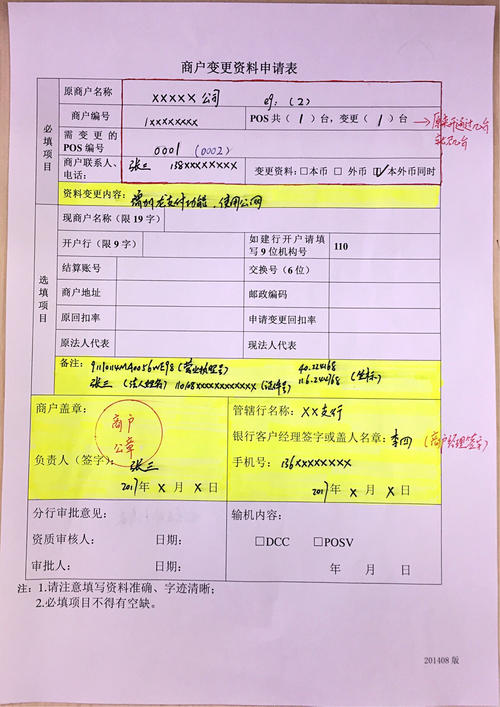 商户变更资料申请表
必填项目
原商户名称 XXXXX公司 eg:(2)
商户编号 1XXXXXXXX POS共(1)台，变更(1)台
需变更的POS编号 0001 (0002)
商户联系人、电话: 张三 138XXXXXXXX 变更资料:□本币 □外币 ☑本外币同时
资料变更内容: 增加龙支付功能，使用公网
选填项目
现商户名称（限19字）
开户行（限9字） 如建行开户请填写9位机构号 110
结算账号 交换号（6位）
商户地址 邮政编码
原回扣率 申请变更回扣率
原法人代表 现法人代表
备注: 91110114MA0056WE98 (营业执照号) 40.224168
张三 (法人姓名) 110108XXXXXXXXXXXX (证件号) 116.244168 (坐标)
商户盖章: 管辖行名称: XX支行
商户公章 银行客户经理签字或盖人名章: 李四 (客户经理签字)
负责人（签字）: 张三 手机号: 136XXXXXXXX
2017年 X 月 X 日 2017年 X 月 X 日
分行审批意见: 输机内容:
资质审核人: 日期: □DCC □POSV
审批人: 日期: 年 月 日
注: 1.请注意填写资料准确、字迹清晰;
2.必填项目不得有空缺。
201408 版